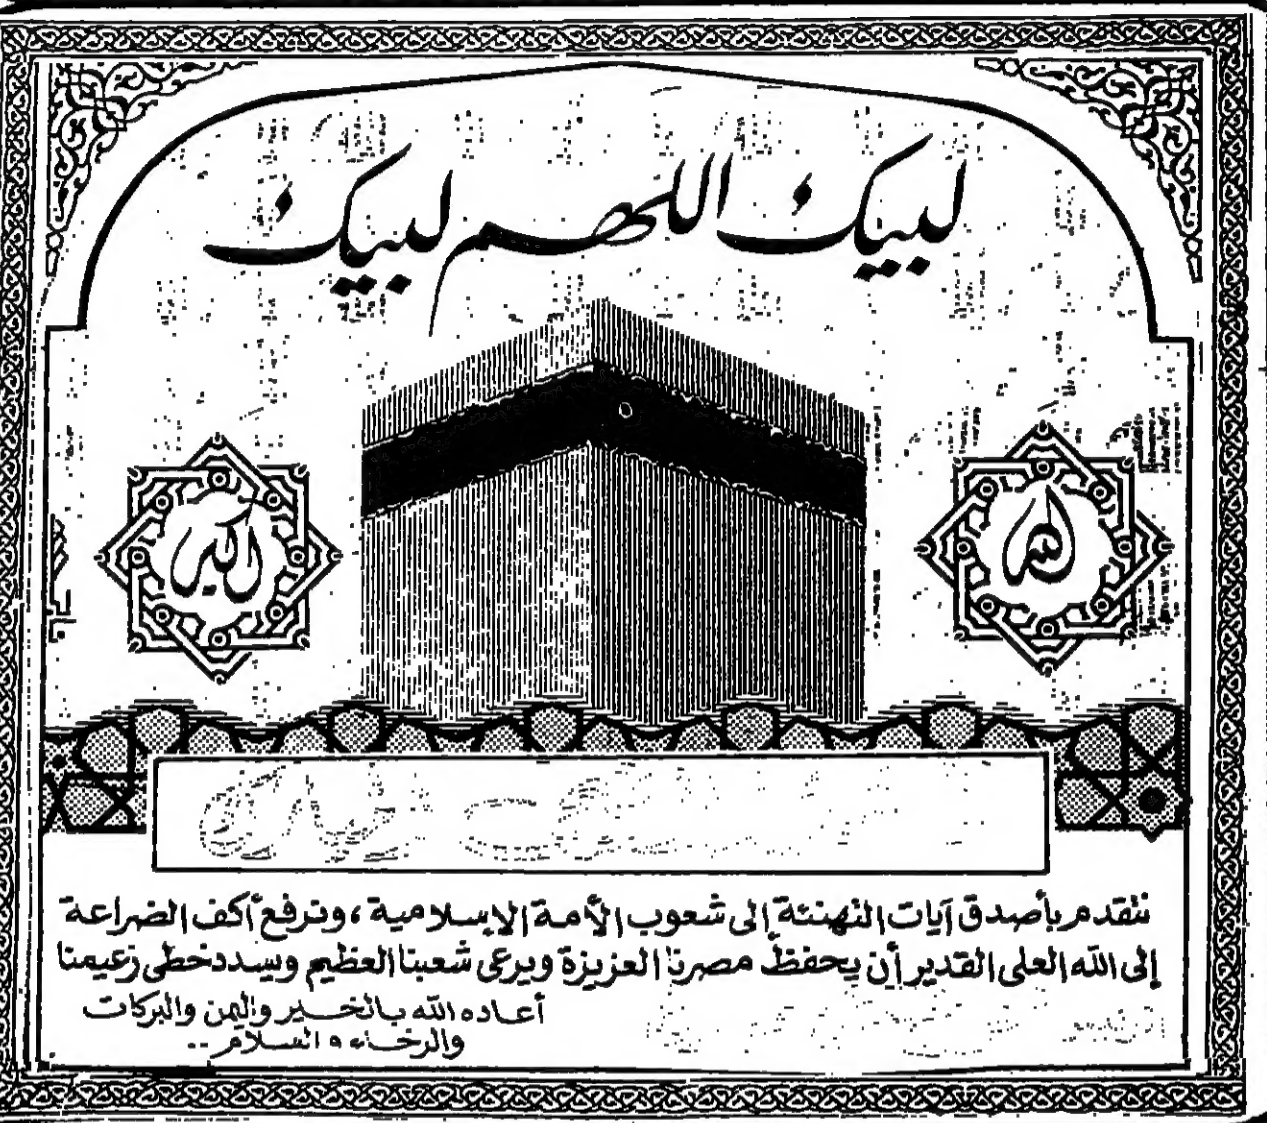 لبيك اللهم لبيك
الله
أكبر
نتقدم بأصدق آيات التهنئة إلى شعوب الأمة الإسلامية، ونرفع أكف الضراعة
إلى الله العلى القدير أن يحفظ مصرنا العزيزة ويرعى شعبنا العظيم ويسدد خطى زعيمنا
أعاده الله بالخير واليمن والبركات
والرخاء والسلام..